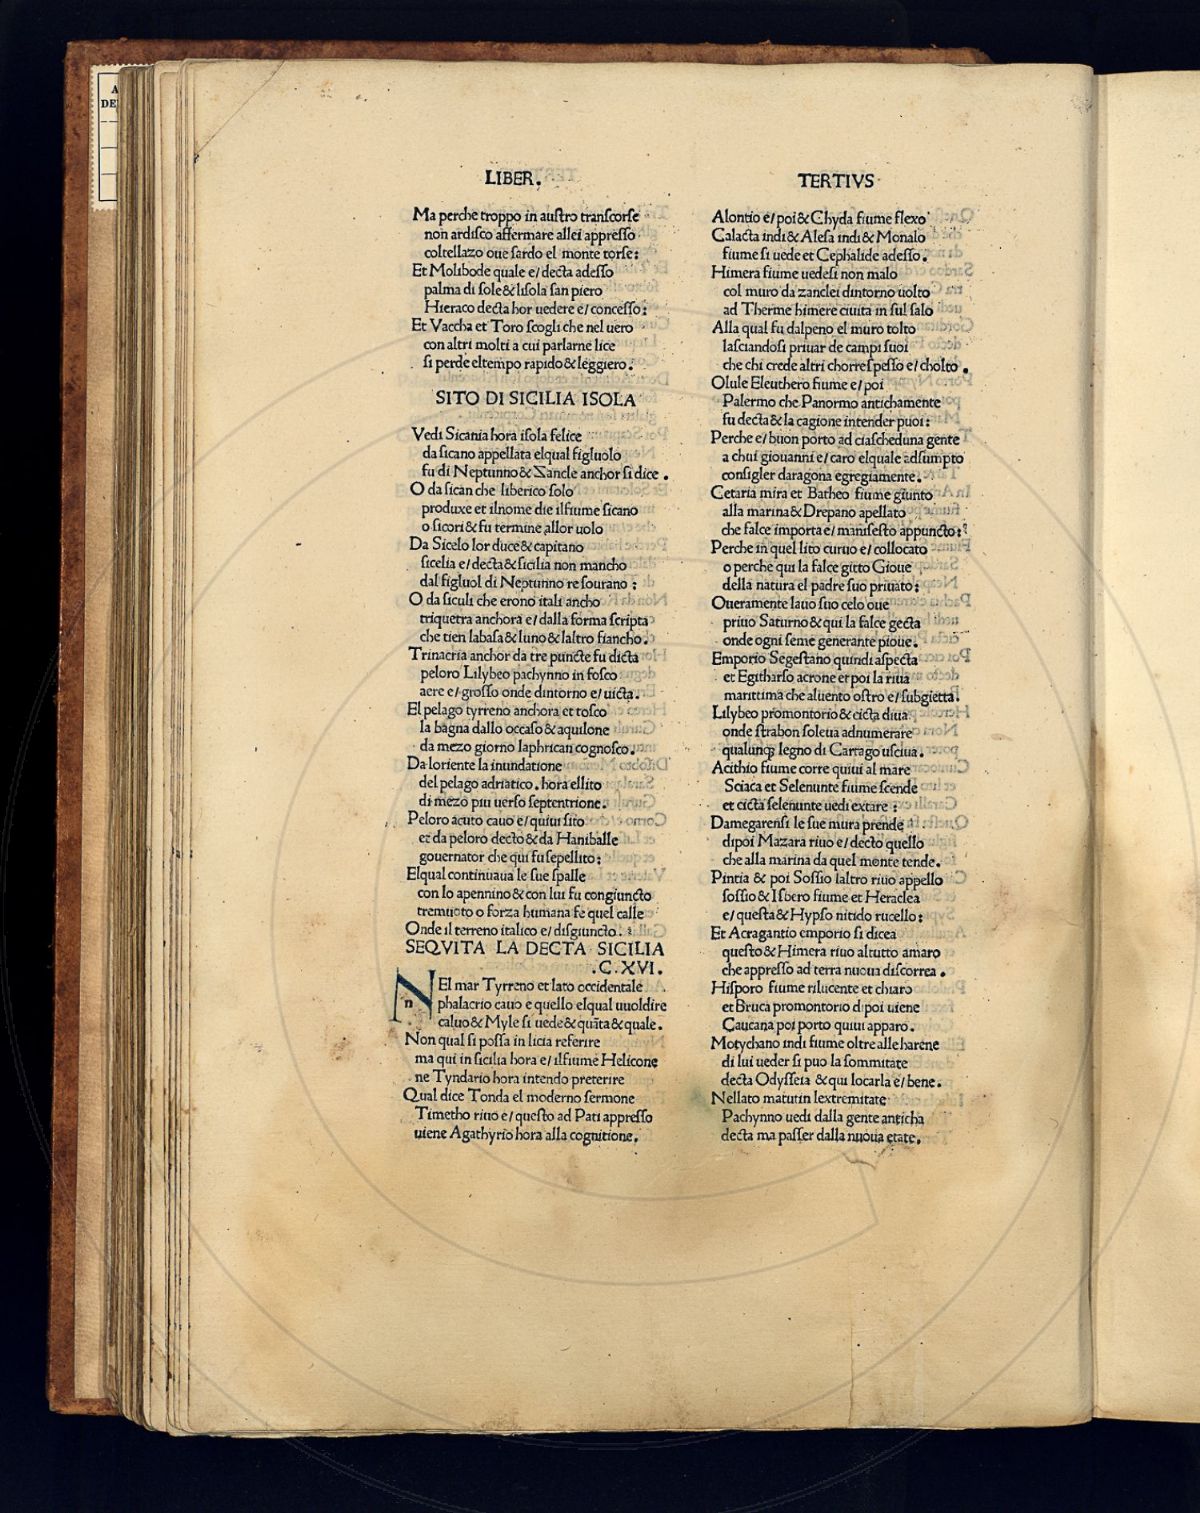 LIBER.
Ma perche troppo in auſtro tranſcorſe
non ardiſco affermare allei appreſſo
coltellazo oue ſardo el monte torſe:
Et Molibode quale e/ decta adeſſo
palma di ſole & liſola ſan piero
Hieraco decta hor uedere e/ conceſſo:
Et Vaccha et Toro ſcogli che nel uero
con altri molti a cui parlarne lice
ſi perde eltempo rapido & leggiero.
SITO DI SICILIA ISOLA
Vedi Sicania hora iſola felice
da ſicano appellata elqual figluolo
fu di Neptunno & Zancle anchor ſi dice.
O da ſican che liberico ſolo
produxe et ilnome die ilfiume ſicano
o ſicori & fu termine allor uolo
Da Sicelo lor duce & capitano
ſicelia e/ decta & ſicilia non mancho
dal figluol di Neptunno re ſourano:
O da ſiculi che erono itali ancho
triquetra anchora e/ dalla forma ſcripta
che tien labaſa & luno & laltro fiancho.
Trinacria anchor da tre puncte fu dicta
peloro Lilybeo pachynno in foſco
aere e/ groſſo onde dintorno e/ uicta.
El pelago tyrreno anchora et toſco
la bagna dallo occaſo & aquilone
da mezo giorno laphrican cognoſco.
Da loriente la inundatione
del pelago adriatico. hora ellito
di mezo piu uerſo ſeptentrione.
Peloro acuto cauo e/ quiui ſito
et da peloro decto & da Haniballe
gouernator che qui fu ſepellito:
Elqual continuaua le ſue ſpalle
con lo apennino & con lui fu congiuncto
tremuoto o forza humana fe quel calle
Onde il terreno italico e/ diſgiuncto.
SEQVITA LA DECTA SICILIA
.C. XVI.
NEl mar Tyrreno et lato occidentale
n phalacrio cauo e quello elqual uuoldire
caluo & Myle ſi uede & quāta & quale.
Non qual ſi poſſa in licia referire
ma qui in ſicilia hora e/ ilfiume Helicone
ne Tyndario hora intendo preterire
Qual dice Tonda el moderno ſermone
Timetho riuo e/ queſto ad Pati appreſſo
uiene Agathyrio hora alla cognitione.
TERTIVS
Alontio e/ poi & Chyda fiume flexo
Calacta indi & Aleſa indi & Monalo
fiume ſi uede et Cephalide adeſſo.
Himera fiume uedeſi non malo
col muro da zanclei dintorno uolto
ad Therme himere ciuita in ſul ſalo
Alla qual fu dalpeno el muro tolto
laſciandoſi priuar de campi ſuoi
che chi crede altri chorreſpeſſo e/ cholto.
Olule Eleuthero fiume e/ poi
Palermo che Panormo antichamente
fu decta & la cagione intender puoi:
Perche e/ buon porto ad ciaſcheduna gente
a chui giouanni e/ caro elquale adſumpto
conſigler daragona egregiamente.
Cetaria mira et Batheo fiume giunto
alla marina & Drepano apellato
che falce importa e/ manifeſto appuncto:
Perche in quel lito curuo e/ collocato
o perche qui la falce gitto Gioue
della natura el padre ſuo priuato:
Oueramente lauo ſuo celo oue
priuo Saturno & qui la falce gecta
onde ogni ſeme generante pioue.
Emporio Segeſtano quindi aſpecta
et Egitharſo acrone et poi la riua
marittima che aluento oſtro e/ ſubgietta.
Lilybeo promontorio & cicta diua
onde ſtrabon ſoleua adnumerare
qualunqꝫ legno di Cartago uſciua.
Acithio fiume corre quiui al mare
Sciaca et Selenunte fiume ſcende
et cicta ſelenunte uedi extare:
Damegarenſi le ſue mura prende
dipoi Mazara riuo e/ decto quello
che alla marina da quel monte tende.
Pintia & poi Soſſio laltro riuo appello
ſoſſio & Iſbero fiume et Heraclea
e/ queſta & Hypſo nitido rucello:
Et Acragantio emporio ſi dicea
queſto & Himera riuo altutto amaro
che appreſſo ad terra nuoua diſcorrea.
Hiſporo fiume rilucente et chiaro
et Bruca promontorio dipoi uiene
Caucana poi porto quiui apparo.
Motychano indi fiume oltre alle harene
di lui ueder ſi puo la ſommitate
decta Odyſſeia & qui locarla e/ bene.
Nellato matutin lextremitate
Pachynno uedi dalla gente anticha
decta ma paſſer dalla nuoua etate.